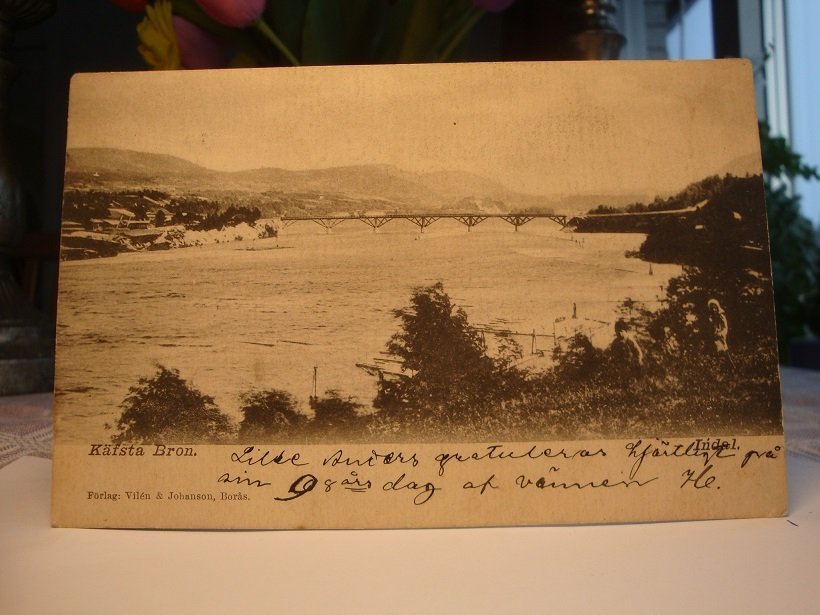 Käfsta Bron.
Indal.
Lille Anders gratuleras hjärtligt på
sin 8 års dag af vännen H.
Förlag: Vilén & Johanson, Borås.